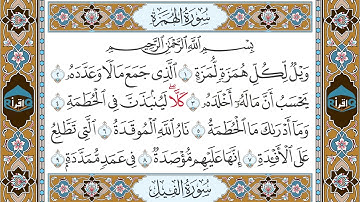 سُورَةُ الهُمَزَةِ
بِسْمِ اللَّهِ الرَّحْمَٰنِ الرَّحِيمِ
وَيْلٌ لِّكُلِّ هُمَزَةٍ لُّمَزَةٍ ١ الَّذِي جَمَعَ مَالًا وَعَدَّدَهُ ٢
يَحْسَبُ أَنَّ مَالَهُ أَخْلَدَهُ ٣ كَلَّا ۖ لَيُنبَذَنَّ فِي الْحُطَمَةِ ٤
وَمَا أَدْرَاكَ مَا الْحُطَمَةُ ٥ نَارُ اللَّهِ الْمُوقَدَةُ ٦ الَّتِي تَطَّلِعُ
عَلَى الْأَفْئِدَةِ ٧ إِنَّهَا عَلَيْهِم مُّؤْصَدَةٌ ٨ فِي عَمَدٍ مُّمَدَّدَةٍ ٩
سُورَةُ الفِيلِ